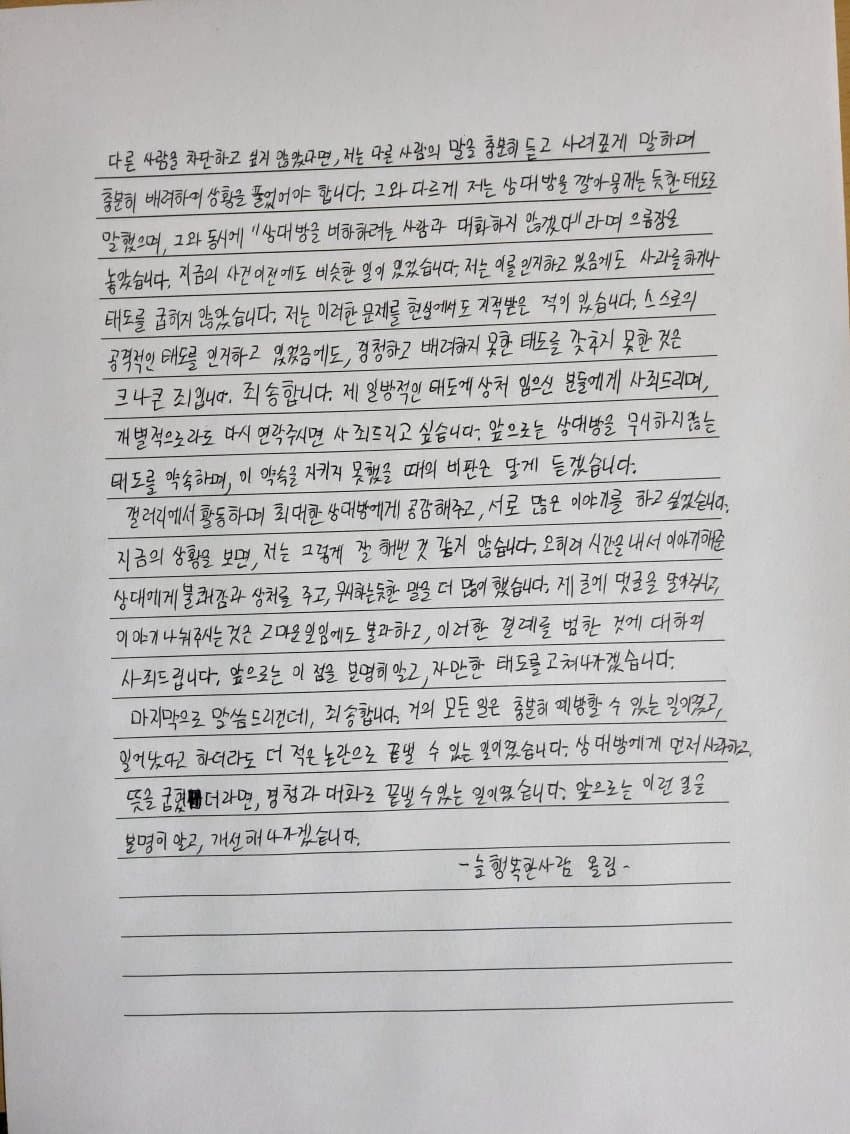 다른 사람을 차단하고 싶지 않았다면, 저는 다른 사람의 말을 충분히 듣고 사려깊게 말하며
충분히 배려하여 상황을 풀었어야 합니다. 그와 다르게 저는 상대방을 깔아뭉개는 듯한 태도로
말했으며, 그와 동시에 "상대방을 비하하려는 사람과 대화하지 않겠다" 라며 으름장을
놓았습니다. 지금의 사건 이전에도 비슷한 일이 있었습니다. 저는 이를 인지하고 있음에도 사과를 하거나
태도를 굽히지 않았습니다. 저는 이러한 문제를 현실에서도 지적받은 적이 있습니다. 스스로의
공격적인 태도를 인지하고 있었음에도, 경청하고 배려하지 못한 태도를 갖추지 못한 것은
크나큰 죄입니다. 죄송합니다. 제 일방적인 태도에 상처 입으신 분들에게 사죄드리며,
개별적으로라도 다시 연락주시면 사죄드리고 싶습니다. 앞으로는 상대방을 무시하지않는
태도를 약속하며, 이 약속을 지키지 못했을 때의 비판은 달게 듣겠습니다.
갤러리에서 활동하며 최대한 상대방에게 공감해주고, 서로 많은 이야기를 하고 싶었습니다.
지금의 상황을 보면, 저는 그렇게 잘 해낸 것 같지 않습니다. 오히려 시간을 내서 이야기해준
상대에게 불쾌감과 상처를 주고, 무시하는듯한 말을 더 많이 했습니다. 제 글에 댓글을 달아주시고,
이야기 나눠주시는 것은 고마운일임에도 불과하고, 이러한 결례를 범한 것에 대하여
사죄드립니다. 앞으로는 이 점을 분명히 알고, 자만한 태도를 고쳐나가겠습니다.
마지막으로 말씀드리건데, 죄송합니다. 거의 모든 일은 충분히 예방할 수 있는 일이였고,
일어났다고 하더라도 더 적은 논란으로 끝낼 수 있는 일이였습니다. 상대방에게 먼저 사과하고,
뜻을 굽혔더라면, 경청과 대화로 끝낼 수있는 일이였습니다. 앞으로는 이런 일을
분명히 알고, 개선해나가겠습니다.
- 늘행복한사람 올림 -